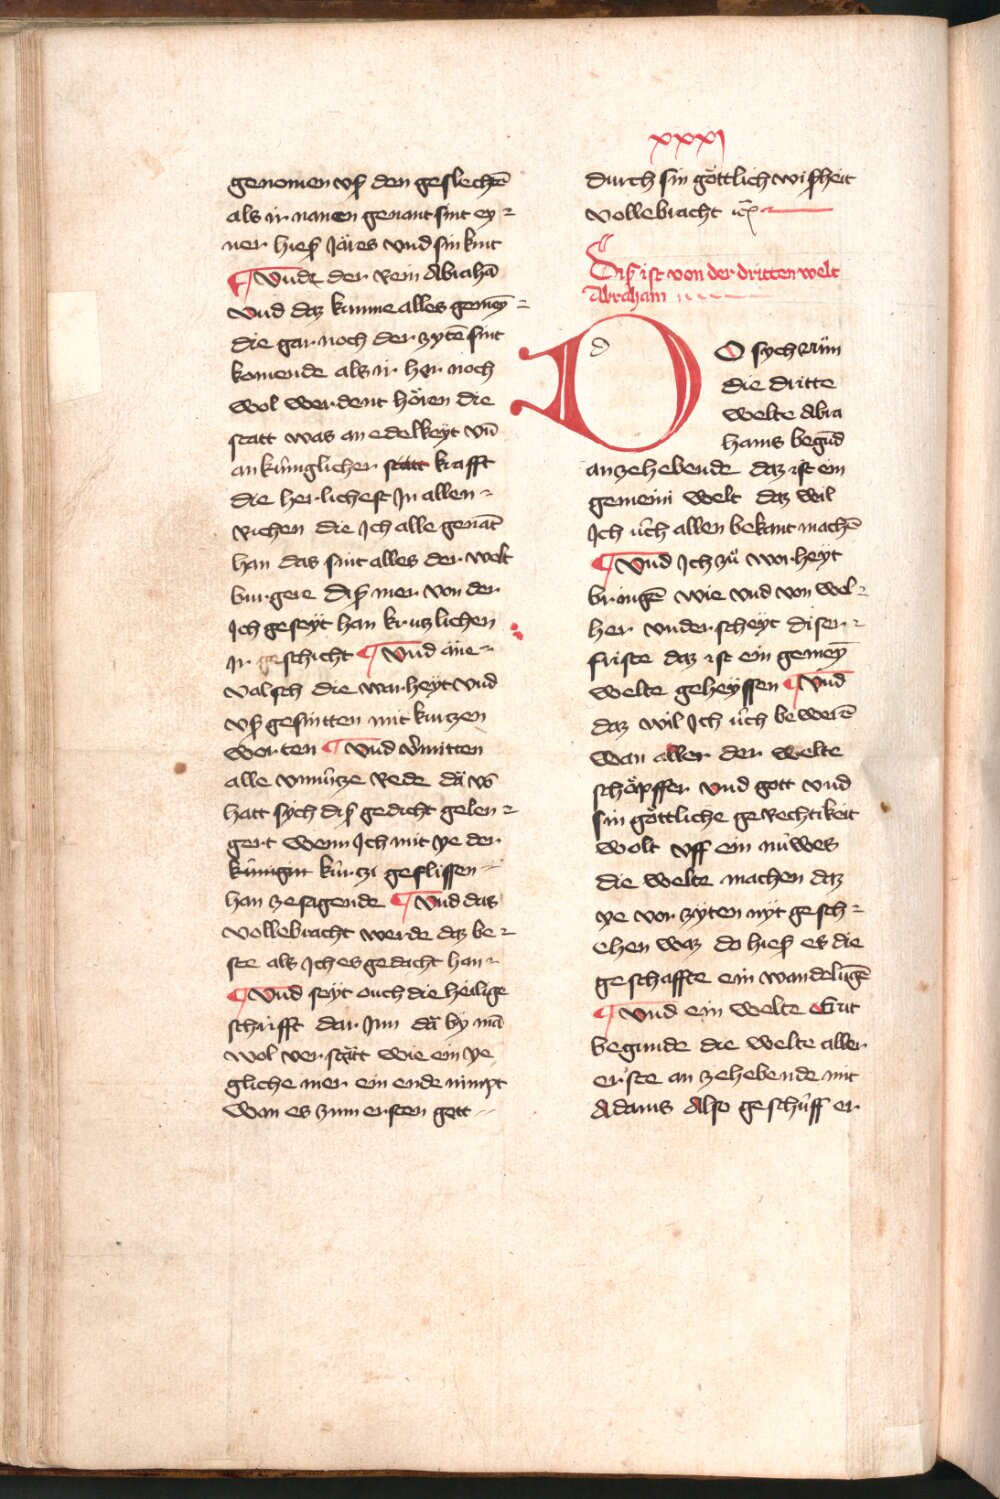 genomen vß den geslechtē
als ir namen genant sint ey⸗
ner hieß Jares vnd sin kint
¶ Vnde der Rein Abrahā
vnd daz kumme alles gemey̅⸗
die gar noch der zytē sint
komende als ir her noch
wol werdent hören die
statt was an edelkeyt vn̄
an kúniglicher statt krafft
die herlichest Jn allen⸗
Richen die Jch alle genāt
han das sint alles der welt
burgere Diß mer von der
Jch geseyt han krutzlichen
Jr geschicht ¶ Vnd ane⸗
valsch die warheyt vnd
vß gesintten mit kurtzen
worten ¶ Vnd v̄mitten
alle vnnútze Rede dā vō
hatt sych diß gedicht gelen⸗
gert wenn Jch mit ye der
kúnigin kúrtzi geflissen⸗
han zesagende ¶ Vnd das
vollebracht werde daz be⸗
ste als Jch es gedacht han⸗
¶ Vnd seyt ouch die heilige
schrifft dar Jnn dā by mā
wol verstātt wie ein ye
gliche mer ein ende nimpt
wan es zum ersten gott⸗
xxxj
durch sin göttlich wißheit
vollebracht
Diß ist von der dritten welt
Abraham
DO sych Nůn
die dritte
welte Abra
hams begūd
anzehebende daz ist ein
gemeini welt daz wil
Jch úch allen bekant machē
¶ Vnd Jch zů worheyt
bringē wie vnd von wel⸗
her vnderscheyt diser⸗
friste daz ist ein gemey̅
welte geheyssen ¶ Vnd
daz wil Jch úch bewerē
wan aller der welte
schöpffer vnd gott vnd
sin göttliche geRechtikeit
wolt vff ein núwes
die welte machen daz
ye vor zyten nyt gesch⸗
ehen waz do hieß es die
geschaffte ein wandelūgē
¶ Vnd ein welte Erst
begunde die welte aller
erste an zehebende mit
Adams Also geschůff er